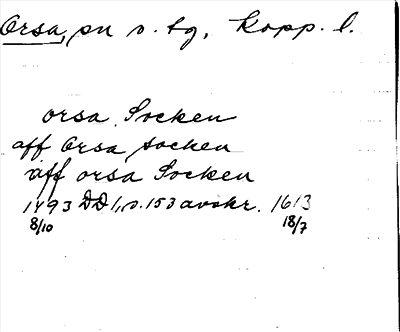 Orsa, sn o. tg, Kopp. l.
orsa Socken
aff Orsa socken
aff orsa Socken
1493 DD 1, s. 153 avskr. 1613
8/10 18/7